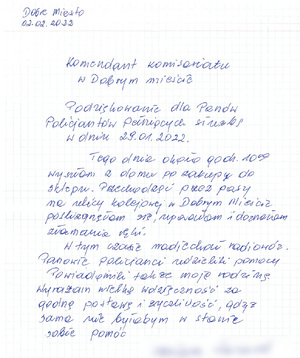 Dobre Miasto
02.02.2022
Komendant komisariatu
w Dobrym mieście
Podziękowanie dla Panów
Policjantów Pełniących służbę
w dniu 29.01.2022.
Tego dnia około godz. 10⁰⁰
wyszłam z domu po zakupy do
sklepu. Przechodząc przez pasy
na ulicy kolejowej w Dobrym Mieście
poślizgnęłam się, upadłam i doznałam
złamania ręki.
W tym czasie nadjechał radiowóz.
Panowie policjanci udzielili pomocy
Powiadomili także moją rodzinę
wyrażam wielką wdzięczność za
godną postawę i życzliwość, gdyż
sama nie byłabym w stanie
sobie pomóc